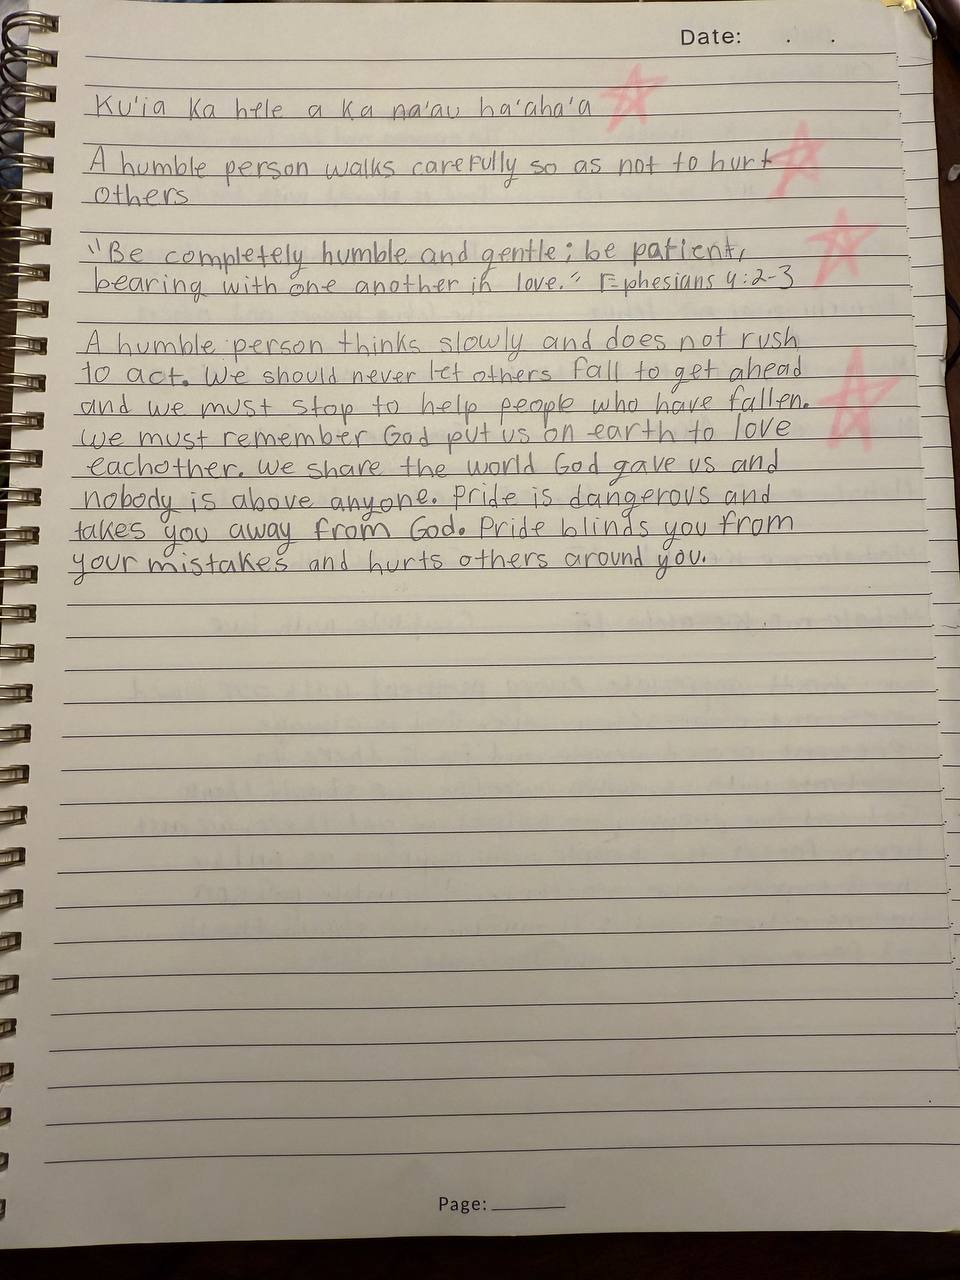 Date: . .
Ku'ia ka hele a ka na'au ha'aha'a
A humble person walks carefully so as not to hurt
others
"Be completely humble and gentle; be patient,
bearing with one another in love." Ephesians 4:2-3
A humble person thinks slowly and does not rush
to act. We should never let others fall to get ahead
and we must stop to help people who have fallen.
We must remember God put us on earth to love
eachother. We share the world God gave us and
nobody is above anyone. Pride is dangerous and
takes you away from God. Pride blinds you from
your mistakes and hurts others around you.
Page: